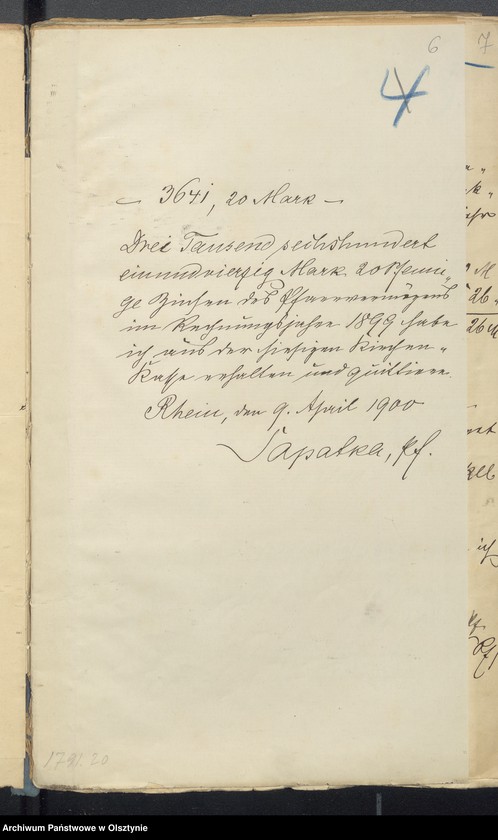 6
7
4
- 3641, 20 Mark -
Drei Tausend sechshundert
einundvierzig Mark 20 Pfenni-
ge Zinsen des Pfarrvermögens
im Rechnungsjahre 1899 habe
ich aus der hiesigen Kirchen-
Kasse erhalten und quittiere.
Rhein, den 9. April 1900
Sapatka, Pf.
M
26
26 M
ich
1791.20
Archiwum Państwowe w Olsztynie